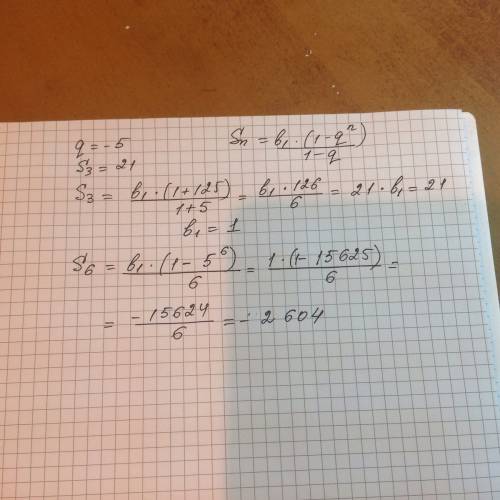 q = -5
Sn = b1 · (1-q^n) / 1-q
S3 = 21
S3 = b1 · (1+125) / 1+5 = b1 · 126 / 6 = 21 · b1 = 21
b1 = 1
S6 = b1 · (1 - 5^6) / 6 = 1 · (1 - 15625) / 6 =
= -15624 / 6 = - 2 604